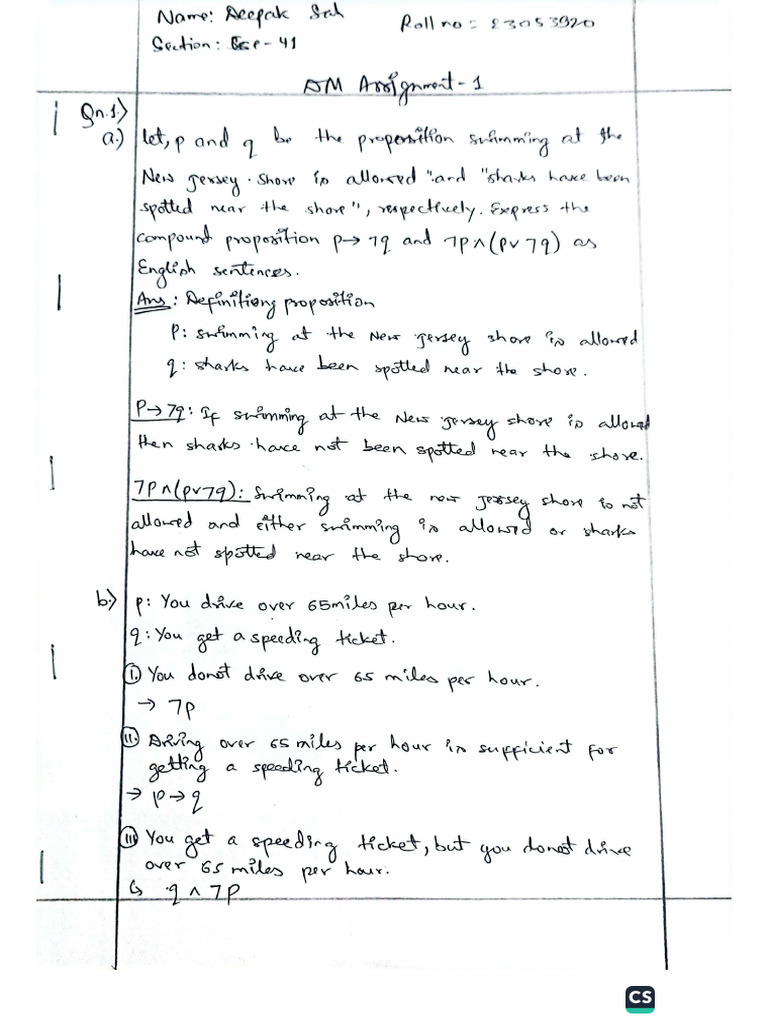 Name: Deepak Sah
Roll no: 23053920
Section: CSE-41
DM Assignment-1
Qn.1.)
a.) let, p and q be the proposition swimming at the
New Jersey. Shore is allowed "and "sharks have been
spotted near the shore", respectively. Express the
compound proposition p→ ¬q and ¬p∧(p∨¬q) as
English sentences.
Ans: Definitions proposition
P: swimming at the New Jersey shore is allowed
q: sharks have been spotted near the shore.
P→¬q: If swimming at the New Jersey shore is allowed
then sharks have not been spotted near the shore.
¬p∧(p∨¬q): Swimming at the new Jersey shore is not
allowed and either swimming is allowed or sharks
have not spotted near the shore.
b.) p: You drive over 65miles per hour.
q: You get a speeding ticket.
i. You donot drive over 65 miles per hour.
→ ¬p
ii. Driving over 65 miles per hour is sufficient for
getting a speeding ticket.
→ p→q
iii You get a speeding ticket, but you donot drive
over 65 miles per hour.
↳ q ∧ ¬P
CS